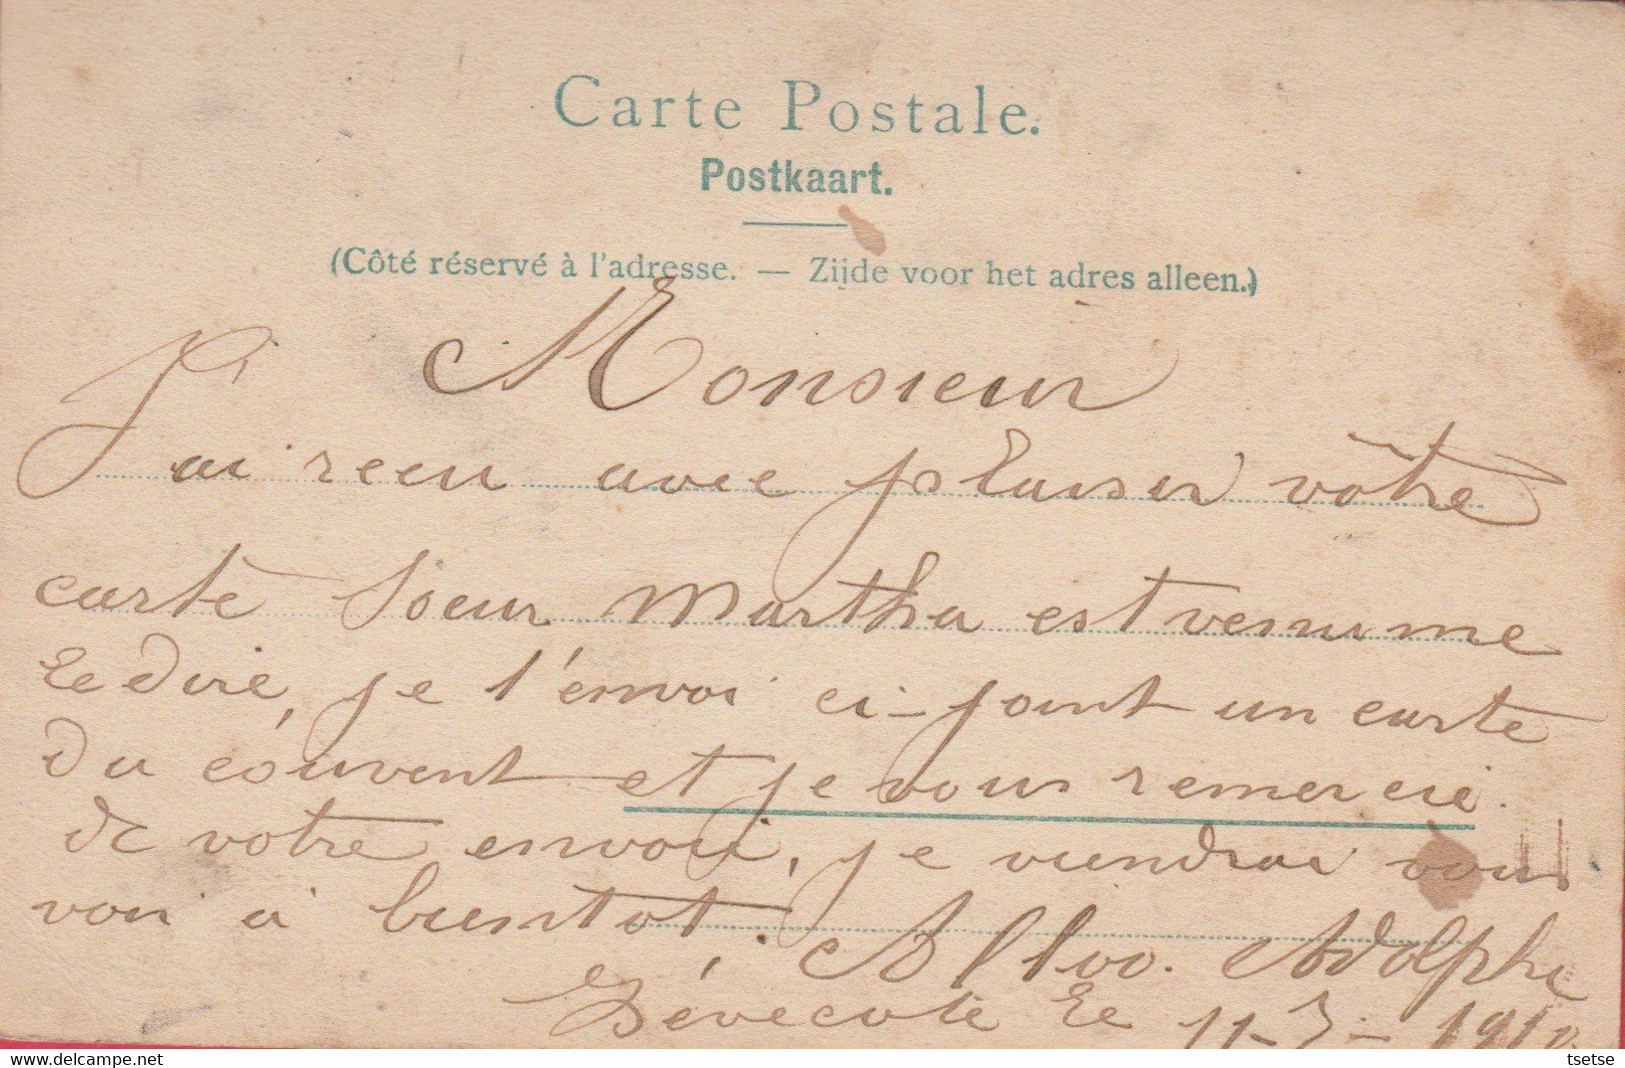 Carte Postale.
Postkaart.
(Côté réservé à l'adresse. — Zijde voor het adres alleen.)
Monsieur
J'ai recu avec plaisir vôtre
carte Soeur Martha est venu me
le dire, je l'envoi ci-joint un carte
du couvent et je vous remercie.
de votre envoi, je viendrai vous
voir à bientot. Adolphe
Sévecote le 11-3-1910
tsetse